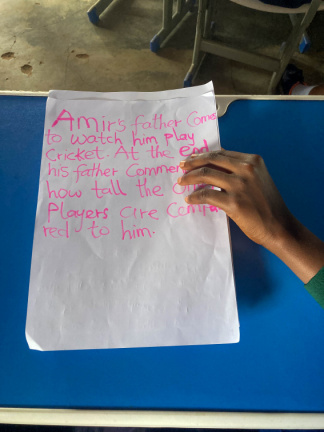 Amir's father Comes
to watch him Play
Cricket. At the end
his father Comme
how tall the
Players are Compa
red to him.